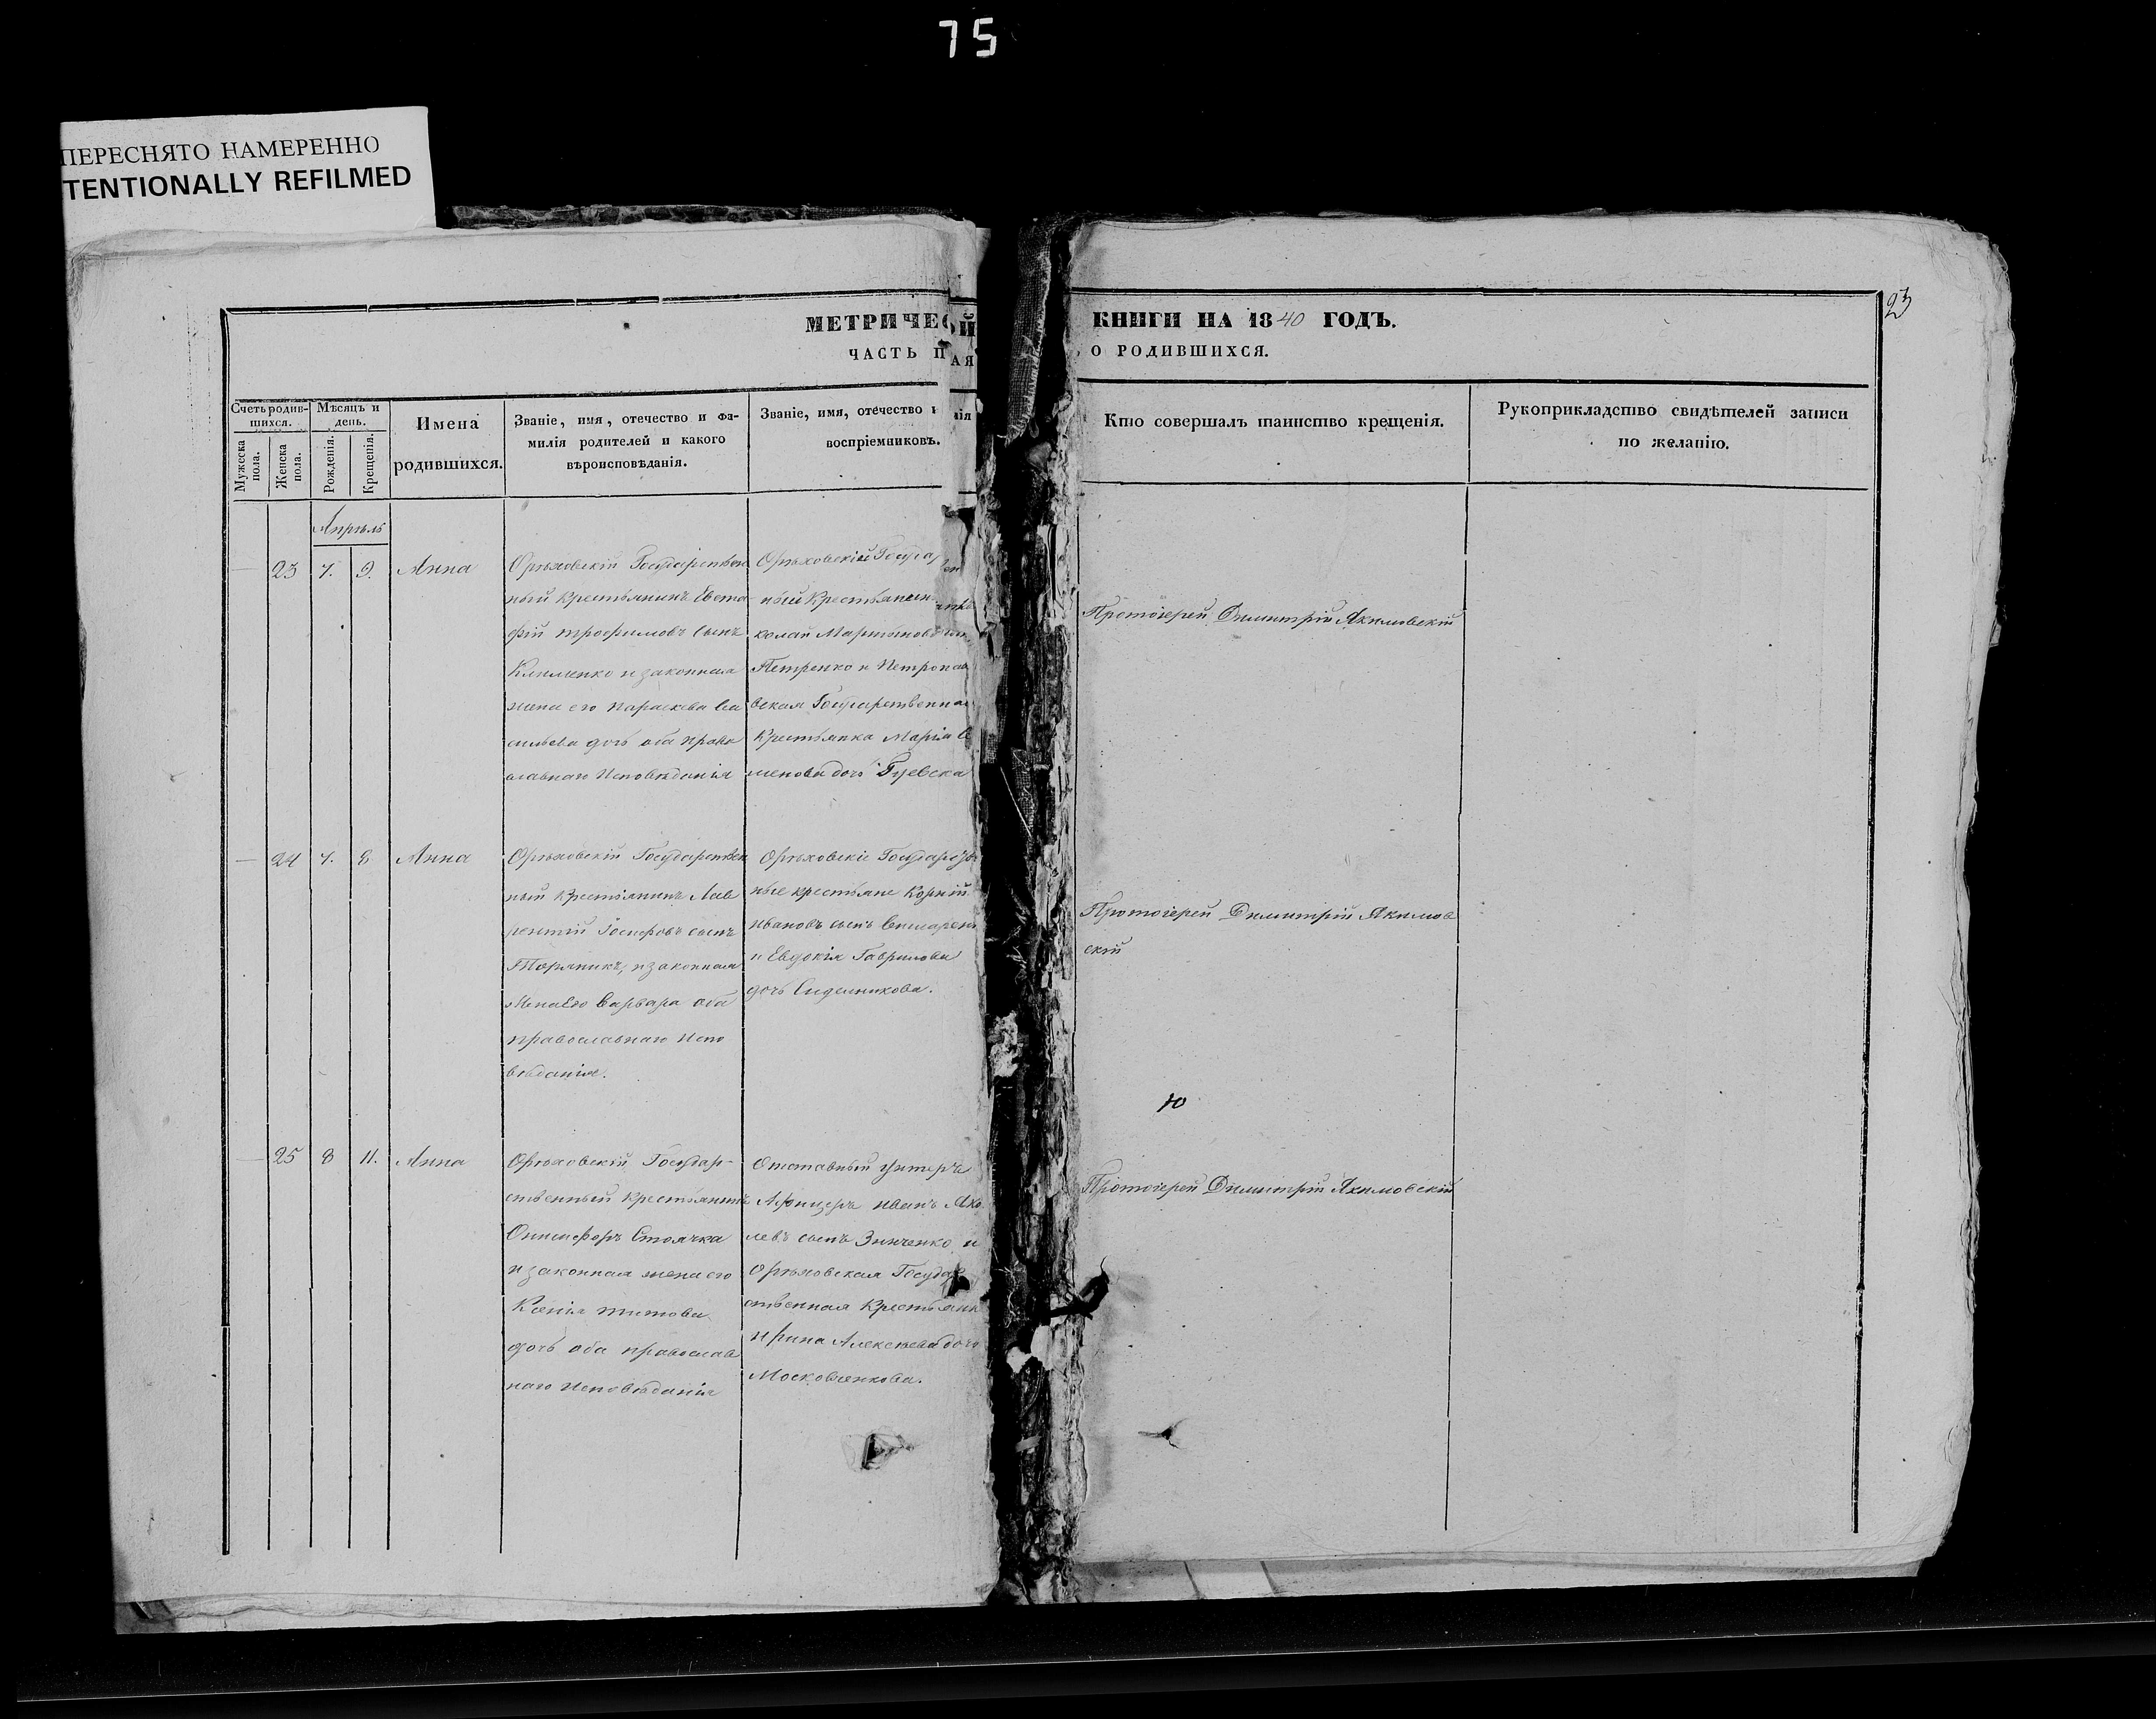 75
ПЕРЕСНЯТО НАМЕРЕННО
TENTIONALLY REFILMED
23
МЕТРИЧЕСОЙ
КНИГИ НА 1840 ГОДЪ.
ЧАСТЬ П АЯ
О РОДИВШИХСЯ.
Счетъ родив-
шихся.
Мужеска
пола.
Женска
пола.
Мѣсяцъ и
день.
Рожденія.
Крещенія.
Имена
родившихся.
Званіе, имя, отечество и фа-
милія родителей и какого
вѣроисповѣданія.
Званіе, имя, отечество и нія
воспріемниковъ.
Кто совершалъ таинство крещенія.
Рукоприкладство свидѣтелей записи
по желанію.
Апрѣль
23 7. 9. Анна
Орѣховскій Государствен
ный Крестьянинъ Евста
фій трофимовъ сынъ
Клименко и законная
жена его Параскева Ва
сильева дочь оба право
славнаго Исповѣданія
Орѣховскій Государ
ный Крестьянинъ
колай Мартыновъ
Петренко и Петропав
вская Государственная
Крестьянка Марія С
менова дочь Гуевска
Протоіерей Димитрій Якимовскій
24 7. 8. Анна
Орѣховскій Государствен
ный Крестьянинъ Лав
рентій Іосифовъ сынъ
и законная
Жена Его Варвара оба
православнаго Испо
вѣданія.
Орѣховскіе Государ
ные крестьяне Корній
Ивановъ сынъ
и Евдокія Гаврилова
дочь Сиделникова.
Протоіерей Димитрій Якимов
скій
Ю
25 8 11. Анна
Орѣховскій Государ-
ственный крестьянинъ
Онисифоръ Стоячка
и законная жена его
Ксенія титова
дочь оба православ
наго Исповѣданія
Отставный унтеръ
Афицеръ Иванъ Яко
левъ сынъ Зинченко и
Орѣховская Государ
ственная Крестьянк
Ирина Алексѣева дочь
Московченкова.
Протоіерей Димитрій Якимовскій